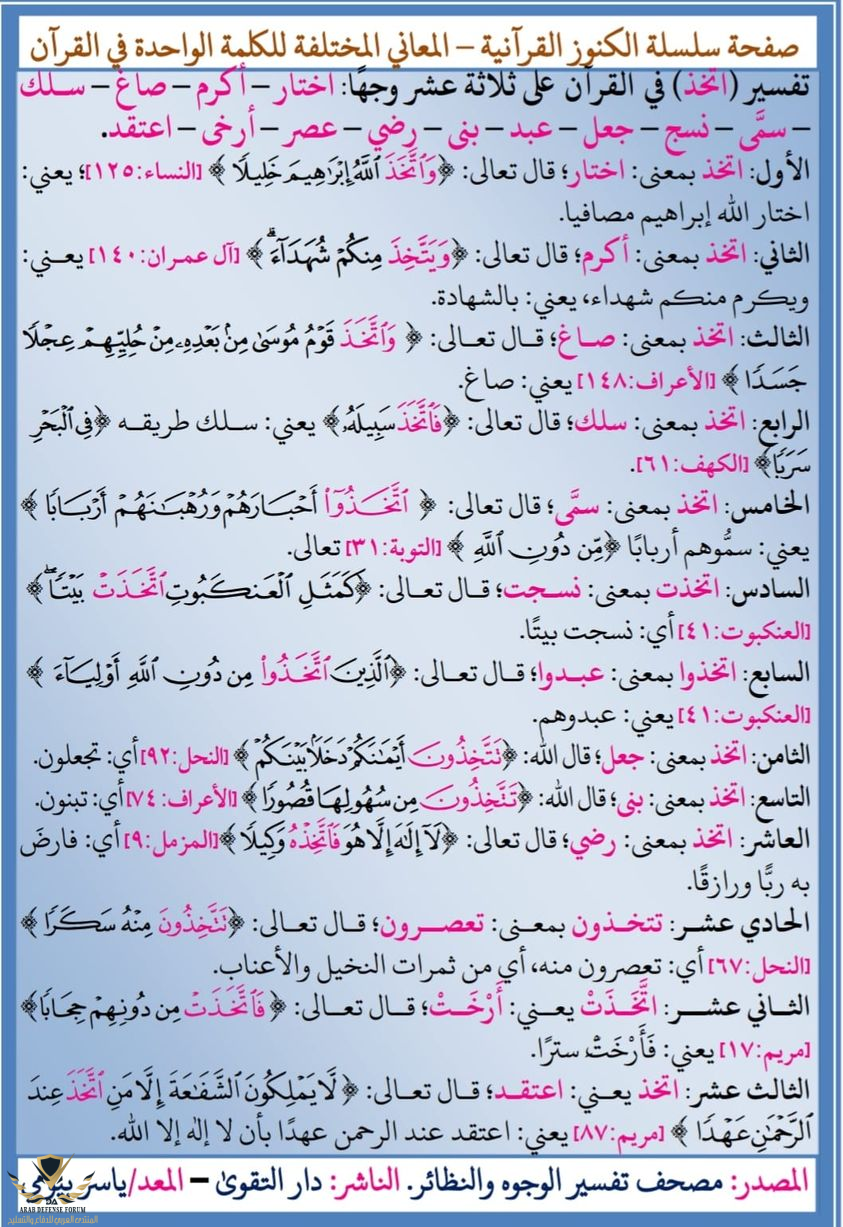 صفحة سلسلة الكنوز القرآنية – المعاني المختلفة للكلمة الواحدة في القرآن
تفسير (اتخذ) في القرآن على ثلاثة عشر وجهًا: اختار – أكرم – صاغ – سلك
– سمَّى – نسج – جعل – عبد – بنى – رضي – عصر – أرخى – اعتقد.
الأول: اتخذ بمعنى: اختار؛ قال تعالى: ﴿وَٱتَّخَذَ ٱللَّهُ إِبْرَٰهِيمَ خَلِيلًا﴾ [النساء:١٢٥]؛ يعني:
اختار الله إبراهيم مصافيا.
الثاني: اتخذ بمعنى: أكرم؛ قال تعالى: ﴿وَيَتَّخِذَ مِنكُمْ شُهَدَآءَۗ﴾ [آل عمران:١٤٠] يعني:
ويكرم منكم شهداء، يعني: بالشهادة.
الثالث: اتخذ بمعنى: صاغ؛ قال تعالى: ﴿وَٱتَّخَذَ قَوْمُ مُوسَىٰ مِنۢ بَعْدِهِۦ مِنْ حُلِيِّهِمْ عِجْلًا
جَسَدًا﴾ [الأعراف:١٤٨] يعني: صاغ.
الرابع: اتخذ بمعنى: سلك؛ قال تعالى: ﴿فَٱتَّخَذَ سَبِيلَهُۥ﴾ يعني: سلك طريقه ﴿فِى ٱلْبَحْرِ
سَرَبًا﴾ [الكهف:٦١].
الخامس: اتخذ بمعنى: سمَّى؛ قال تعالى: ﴿ٱتَّخَذُوٓا۟ أَحْبَارَهُمْ وَرُهْبَٰنَهُمْ أَرْبَابًا﴾
يعني: سمُّوهم أربابًا ﴿مِّن دُونِ ٱللَّهِ﴾ [التوبة:٣١] تعالى.
السادس: اتخذت بمعنى: نسجت؛ قال تعالى: ﴿كَمَثَلِ ٱلْعَنكَبُوتِ ٱتَّخَذَتْ بَيْتًاۖ﴾
[العنكبوت:٤١] أي: نسجت بيتًا.
السابع: اتخذوا بمعنى: عبدوا؛ قال تعالى: ﴿ٱلَّذِينَ ٱتَّخَذُوا۟ مِن دُونِ ٱللَّهِ أَوْلِيَآءَ﴾
[العنكبوت:٤١] يعني: عبدوهم.
الثامن: اتخذ بمعنى: جعل؛ قال الله: ﴿تَتَّخِذُونَ أَيْمَٰنَكُمْ دَخَلًۢا بَيْنَكُمْ﴾ [النحل:٩٢] أي: تجعلون.
التاسع: اتخذ بمعنى: بنى؛ قال الله: ﴿تَتَّخِذُونَ مِن سُهُولِهَا قُصُورًا﴾ [الأعراف:٧٤] أي: تبنون.
العاشر: اتخذ بمعنى: رضي؛ قال تعالى: ﴿لَآ إِلَٰهَ إِلَّا هُوَ فَٱتَّخِذْهُ وَكِيلًا﴾ [المزمل:٩] أي: فارضَ
به ربًّا ورازقًا.
الحادي عشر: تتخذون بمعنى: تعصرون؛ قال تعالى: ﴿تَتَّخِذُونَ مِنْهُ سَكَرًا﴾
[النحل:٦٧] أي: تعصرون منه، أي من ثمرات النخيل والأعناب.
الثاني عشر: اتَّخَذَتْ يعني: أَرْخَتْ؛ قال تعالى: ﴿فَٱتَّخَذَتْ مِن دُونِهِمْ حِجَابًا﴾
[مريم:١٧] يعني: فَأَرْخَتْ سترًا.
الثالث عشر: اتخذ يعني: اعتقد؛ قال تعالى: ﴿لَا يَمْلِكُونَ ٱلشَّفَٰعَةَ إِلَّا مَنِ ٱتَّخَذَ عِندَ
ٱلرَّحْمَٰنِ عَهْدًا﴾ [مريم:٨٧] يعني: اعتقد عند الرحمن عهدًا بأن لا إله إلا الله.
المصدر: مصحف تفسير الوجوه والنظائر. الناشر: دار التقوىٰ – المعد/ياسر بيومى
ARAB DEFENSE FORUM
المنتدى العربي للدفاع والتسليح